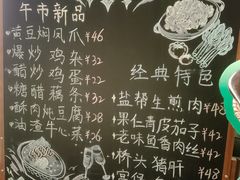 午市新品
黄豆焖凤爪 ¥46
爆炒鸡杂 ¥32
醋炒鸡蛋 ¥22
糖醋藕条 ¥32
酥肉炖豆腐 ¥28
油渣牛心菜 ¥26
经典特色
盐帮生煎肉 ¥48
果仁青皮茄子 ¥42
老味鱼香肉丝 ¥42
桥头猪肝 ¥48
宫保